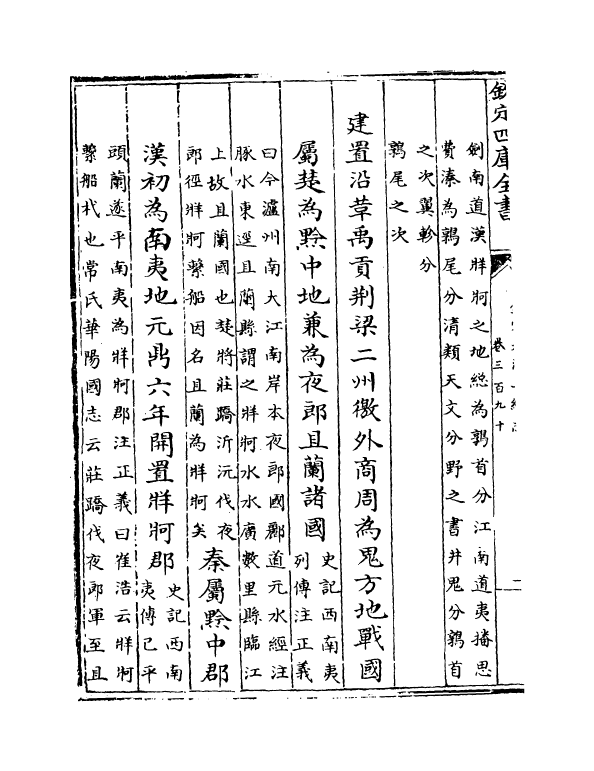 欽定四庫全書
卷三百九十
二
劍南道漢牂牁之地總為鶉首分江南道夷播思
費溱為鶉尾分清類天文分野之書井鬼分鶉首
之次翼軫分
鶉尾之次
建置沿革禹貢荆梁二州徼外商周為鬼方地戰國
屬楚為黔中地兼為夜郎且蘭諸國
史記西南夷
列傳注正義
曰今瀘州南大江南岸本夜郎國酈道元水經注
豚水東逕且蘭縣謂之牂牁水水廣數里縣臨江
上故且蘭國也楚將莊蹻沂沅伐夜
郎徑牂牁繫船因名且蘭為牂牁矣
秦屬黔中郡
漢初為南夷地元鼎六年開置牂牁郡
史記西南
夷傳已平
頭蘭遂平南夷為牂牁郡注正義曰崔浩云牂牁
繫船杙也常氏華陽國志云莊蹻伐夜郎軍至且